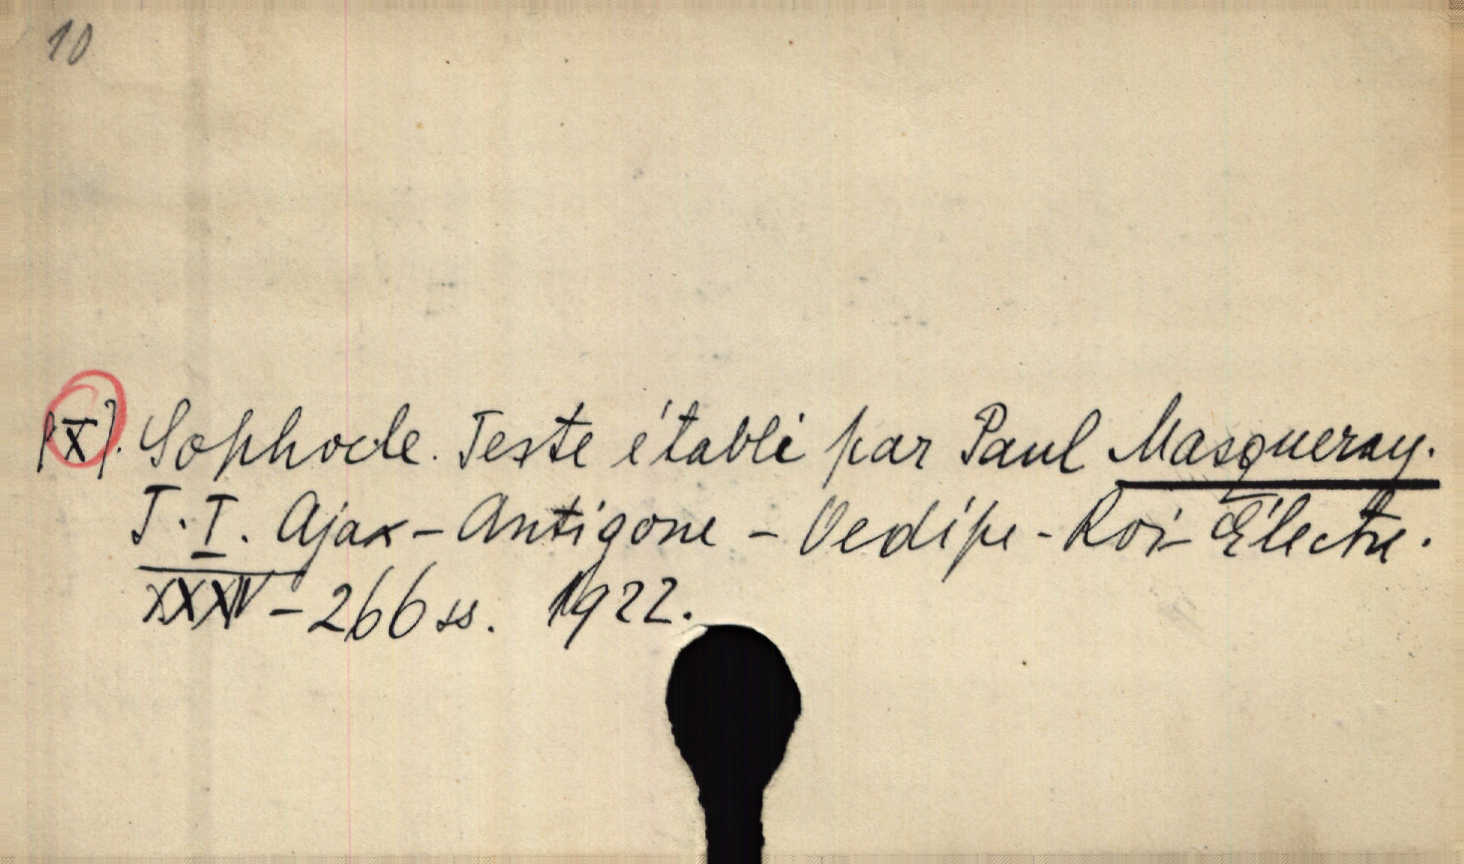 10
[X]. Sophocle. Texte établi par Paul Masqueray.
T. I. Ajax - Antigone - Oedípe - Roi - Électre.
XXXIV - 266 ss. 1922.